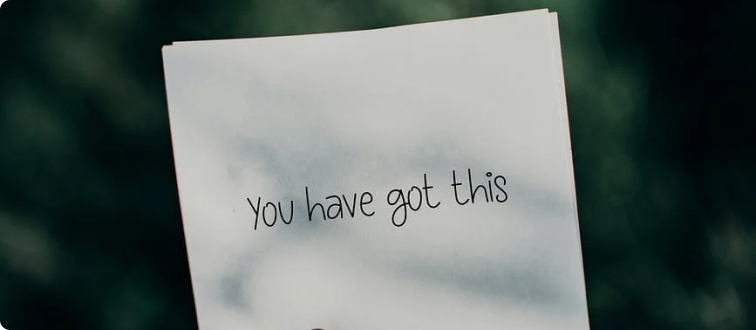 You have got this